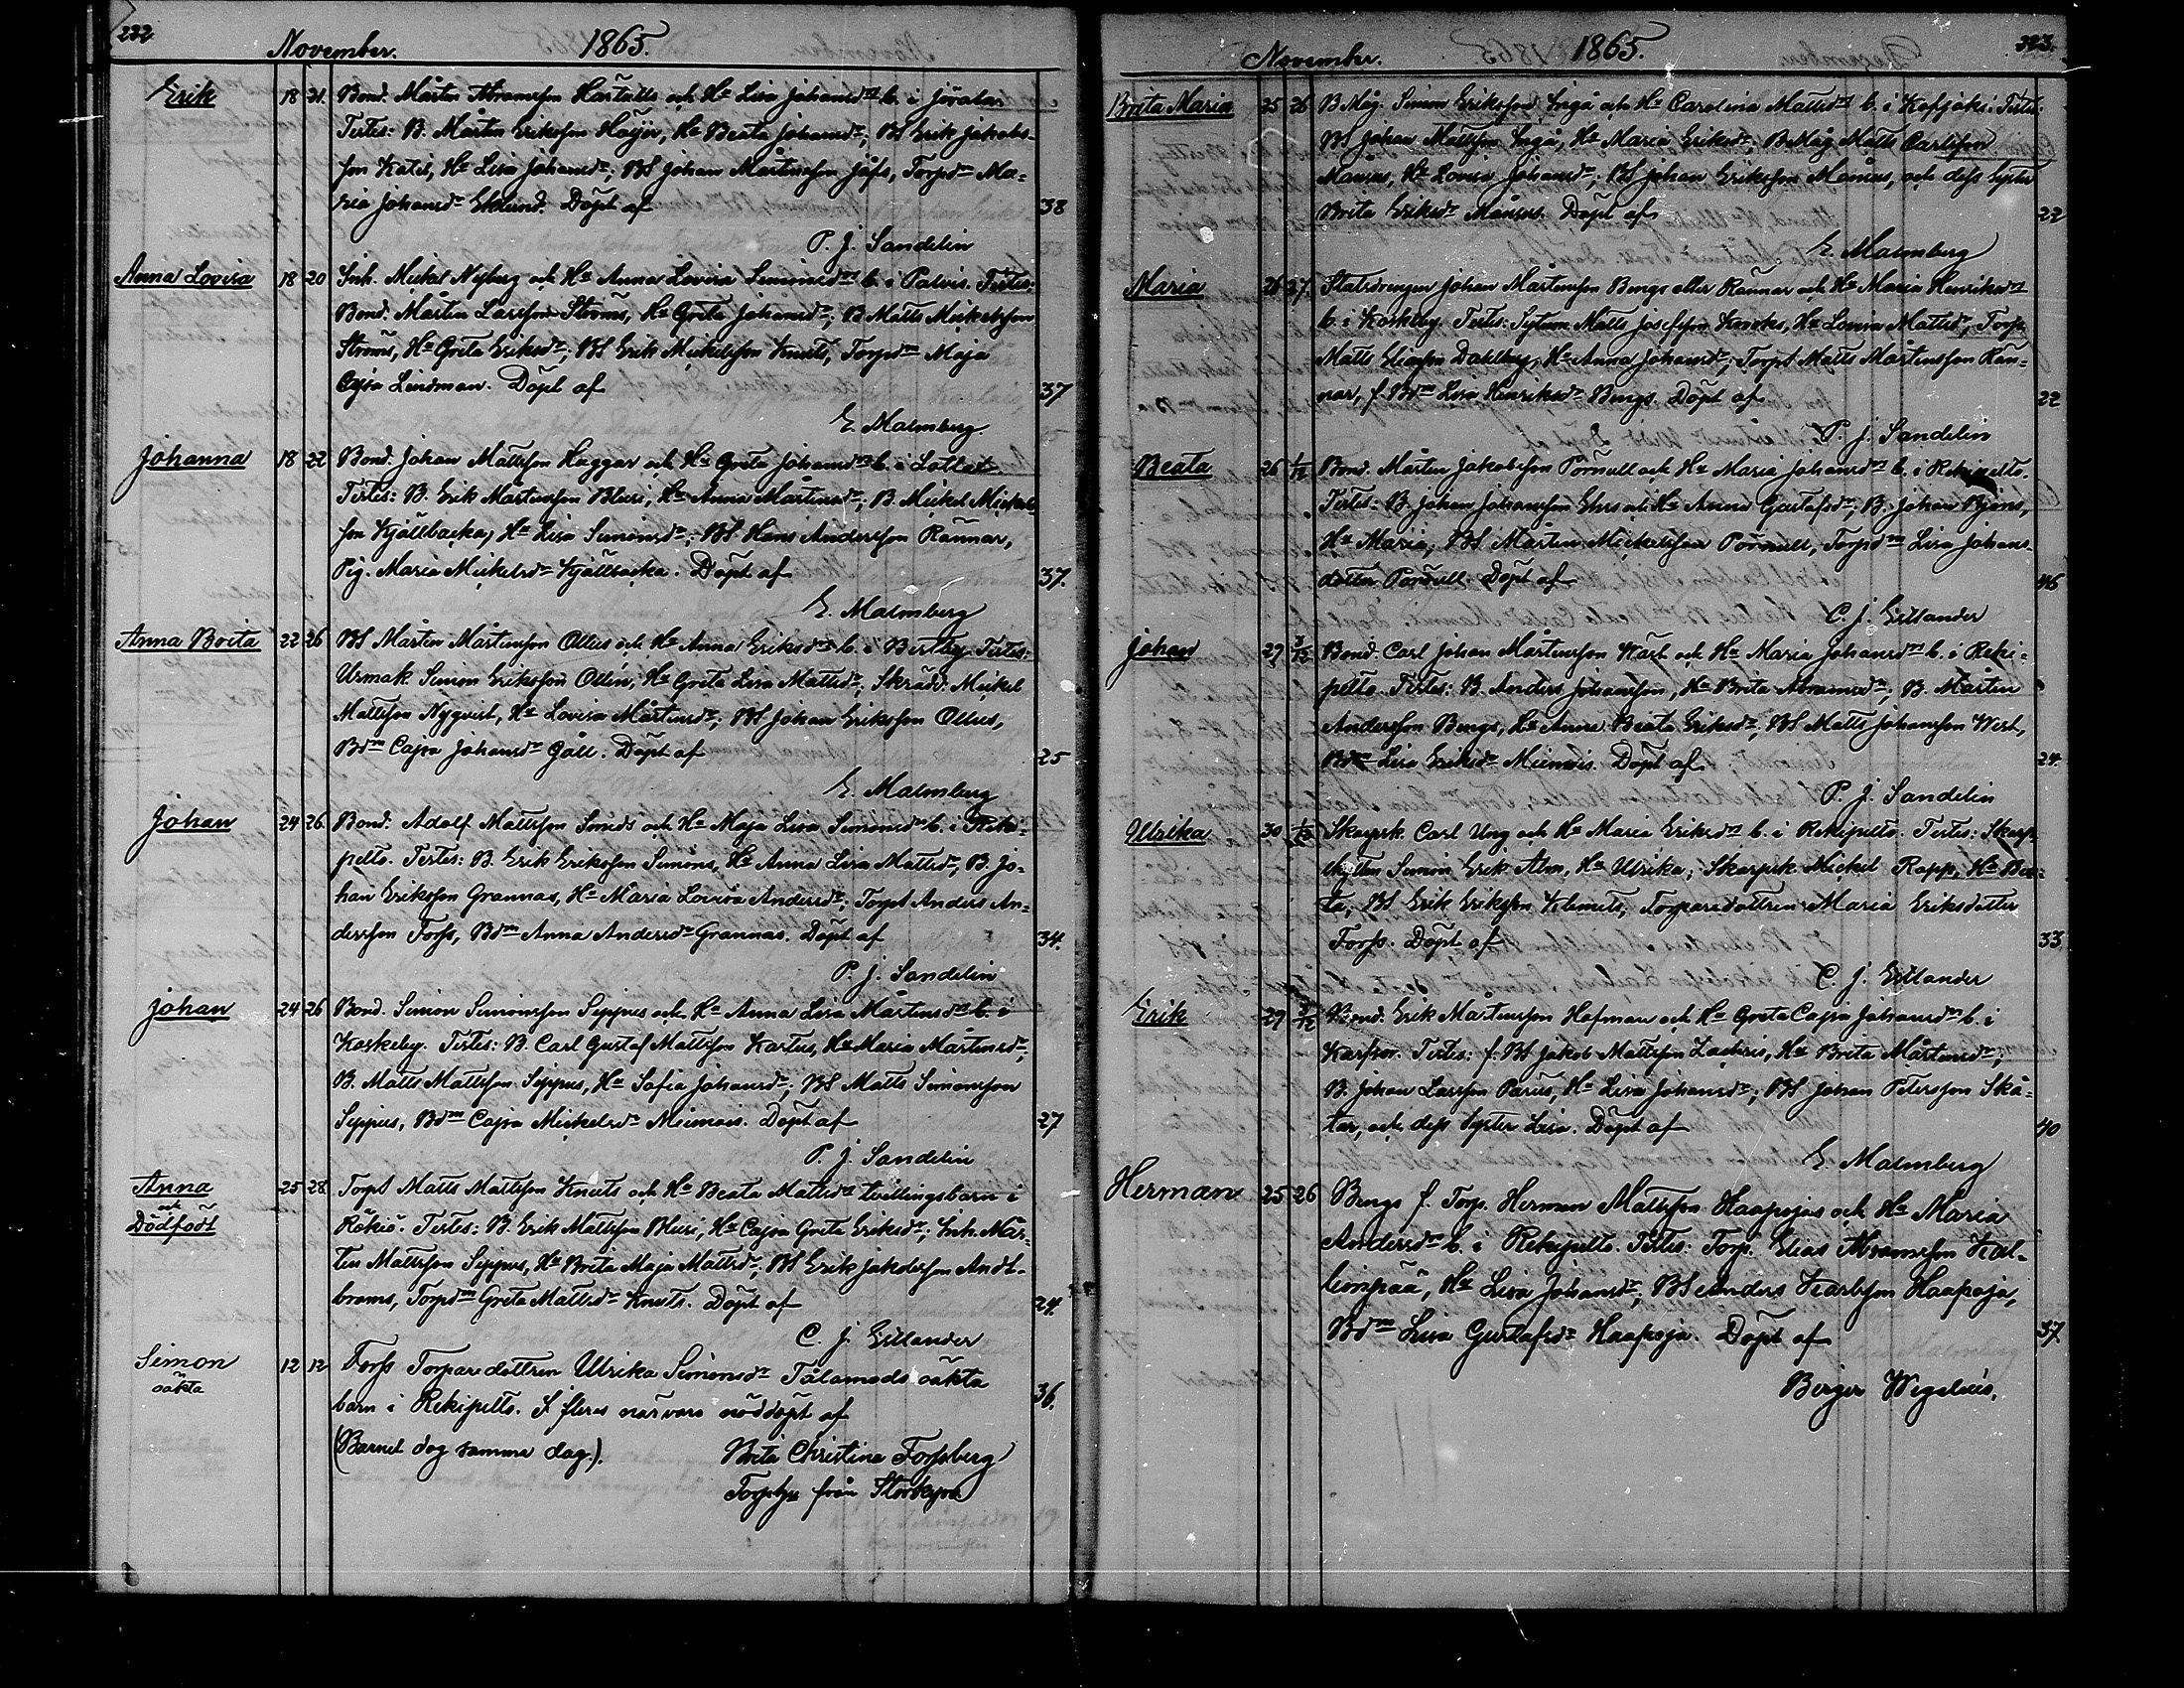 222
November. 1865.
Erik 18 21. Bond. Mårten Abramsson Hartulls och H. Lisa Johansdr b. i Jöralax
Testes: B. Mårten Eriksson Höijer, Ha Beata Johansdr; BS Erik Jakobs-
son Katil, Ha Lisa Johansdr; BS Johan Mårtensson Jåfs, Torpdr Ma-
ria Johansdr Eklund. Döpt af 38
P. J. Sandelin
Anna Lovisa 18 20 Inh. Mickel Nyberg och Ha Anna Lovisa Simonsdr b. i Palvis. Testes:
Bond. Mårten Larsson Ströms, Ha Greta Johansdr; B. Matts Mickelsson
Ströms, Ha Greta Eriksdr; BS Erik Mickelsson Knuts, Torpdm Maja
Cajsa Lindman. Döpt af 37
E. Malmberg.
Johanna 18 22 Bond. Johan Mattsson Haggar och Ha Greta Johansdr b. i Lotlax
Testes: B. Erik Mårtensson Blusi, Ha Anna Mårtensdr; B. Mickel Mickels-
son Kjällbacka, Ha Lisa Simonsdr; BS Hans Andersson Rannar,
Pig. Maria Mickelsdr Kjällbacka. Döpt af 37.
E. Malmberg
Anna Brita 22 26 BS Mårten Mårtensson Ollus och Ha Anna Eriksdr b. i Bertby Testes:
Urmak. Simon Eriksson Ollén, Ha Greta Lisa Mattsdr; Skrädd. Mickel
Mattsson Nyqvist, Ha Lovisa Mårtensdr; BS Johan Eriksson Ollus,
Bdm Cajsa Johansdr Gåll. Döpt af 25
E. Malmberg
Johan 24 26. Bond. Adolf Mattsson Smeds och Ha Maja Lisa Simonsdr b. i Reki-
pelto. Testes: B. Erik Eriksson Simons, Ha Anna Lisa Mattsdr, B. Jo-
han Eriksson Grannas, Ha Maria Lovisa Andersdr; Torpst Anders An-
dersson Forss, Bdm Anna Andersdr Grannas. Döpt af 34.
P. J. Sandelin
Johan 24 26 Bond. Simon Simonsson Sippus och Ha Anna Lisa Mårtensdr b. i
Koskeby. Testes: B. Carl Gustaf Mattsson Kartus, Ha Maria Mårtensdr;
B. Matts Mattsson Sippus, Ha Sofia Johansdr; BS Matts Simonsson
Sippus, Bdm Cajsa Mickelsdr Miemois. Döpt af 27
P. J. Sandelin
Anna 25 28 Torpst Matts Mattsson Knuts och Ha Beata Mattsdr tvillingsbarn i
och
Dödfödt Rökiö. Testes: B. Erik Mattsson Blusi, Ha Cajsa Greta Eriksdr; Inh. Mår-
ten Mattsson Sippus, Ha Brita Maja Mattsdr; BS Erik Jakobsson Andt-
brams, Torpdm Greta Mattsdr Knuts. Döpt af 24.
C. J. Estlander
Simon 12 12 Forss Torparedottren Ulrika Simonsdr Tålamods oäkta
oäkta barn i Rekipelto. I fleras närvaro nöddöpt af 36.
(Barnet dog samma dag.). Brita Christina Forssberg
Torphu från Storkyro
November. 1865. 223.
Brita Maria 25 26 B.Måg. Simon Eriksson Ingå och Ha Carolina Mattsdr b. i Kofjoki. Testes:
BS Johan Mattsson Ingå, Ha Maria Eriksdr; B.Måg Matts Carlsson
Månsus, Ha Lovisa Johansdr; BS Johan Eriksson Månsus, och dess syster
Brita Eriksdr Månsus. Döpt af 22
E. Malmberg
Maria 26 27. Statsdrengen Johan Mårtensson Bengs eller Rannar och Ha Maria Henriksdr
b. i Koskeby. Testes: Sytnm. Matts Josefsson Krooks, Ha Lovisa Mattsdr; Torp.
Matts Eliasson Dahlberg, Ha Anna Johansdr; Torpst Matts Mårtensson Ran-
nar, f. Bdm Lisa Henriksdr Bengs. Döpt af 22
P. J. Sandelin
Beata 26 1/12 Bond. Mårten Jakobsson Pörnull och Ha Maria Johansdr b. i Rekipelto.
Testes: B. Johan Johansson Ehrs och Ha Anna Gustafsdr; B. Johan Bjons,
Ha Maria; BS Mårten Mickelsson Pörnull, Torpdm Lisa Johans-
dotter Pörnull. Döpt af 46
C. J. Estlander
Johan 27 3/12 Bond. Carl Johan Mårtensson Karf och Ha Maria Johansdr b. i Reki-
pelto. Testes: B. Anders Johansson, Ha Brita Abramsdr; B. Mårten
Andersson Bengs, Ha Anna Beata Eriksdr; BS Matts Johansson West,
Bdm Lisa Eriksdr Miemois. Döpt af 24.
P. J. Sandelin
Ulrika 30 1/12 Skarpsk. Carl Ung och Ha Maria Eriksdr b. i Rekipelto. Testes: Skarp-
skytten Simon Erik Alm, Ha Ulrika; Skarpsk Mickel Rapp, Ha Bea-
ta; BS Erik Eriksson Klemets, Torparedottren Maria Eriksdotter
Forss. Döpt af 33
C. J. Estlander
Erik 29 3/12 Bond. Erik Mårtensson Hofman och Ha Greta Cajsa Johansdr b. i
Karfsor. Testes: f. BS Jakob Mattsson Lacteris, Ha Brita Mårtensdr;
B. Johan Larsson Parus, Ha Lisa Johansdr; BS Johan Petersson Skå-
tar, och dess syster Lisa. Döpt af 40
E. Malmberg
Herman 25 26 Bengs f. Torp. Herman Mattsson Haapojas och Ha Maria
Andersdr b. i Rekipelto. Testes: Torp. Elias Abramsson Kal-
lionpää, Ha Lisa Johansdr; BS Anders Karlsson Haapoja,
Bdm Lisa Gustafsdr Haapoja. Döpt af 37.
Birger Wegelius.